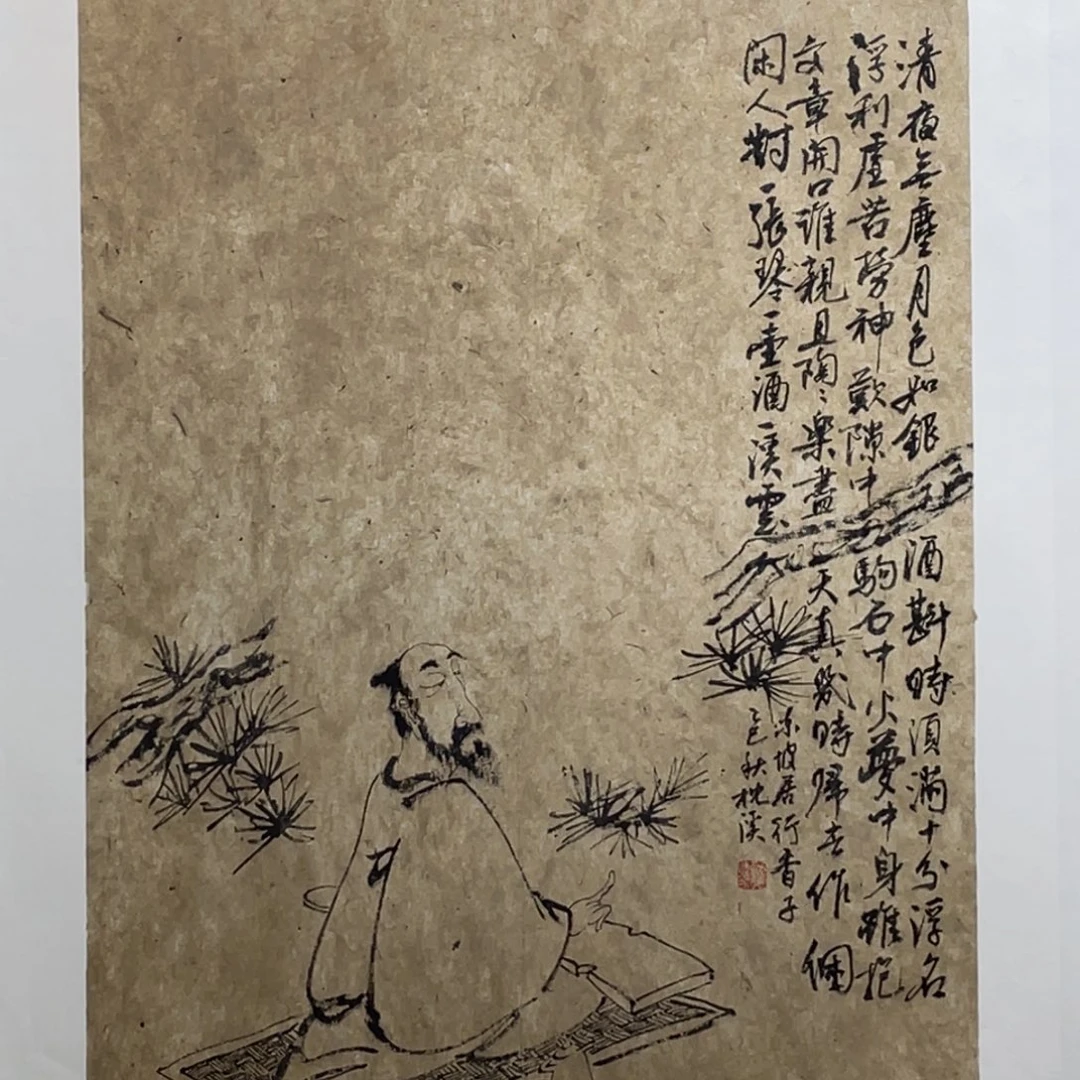 清夜無塵月色如銀酒斟時須滿十分浮名
浮利虛苦勞神歎隙中駒石中火夢中身雖抱
文章開口誰親且陶々樂盡天真幾時歸去作個
閑人對一張琴一壺酒一溪雲
東坡居行香子
乙巳秋枕溪